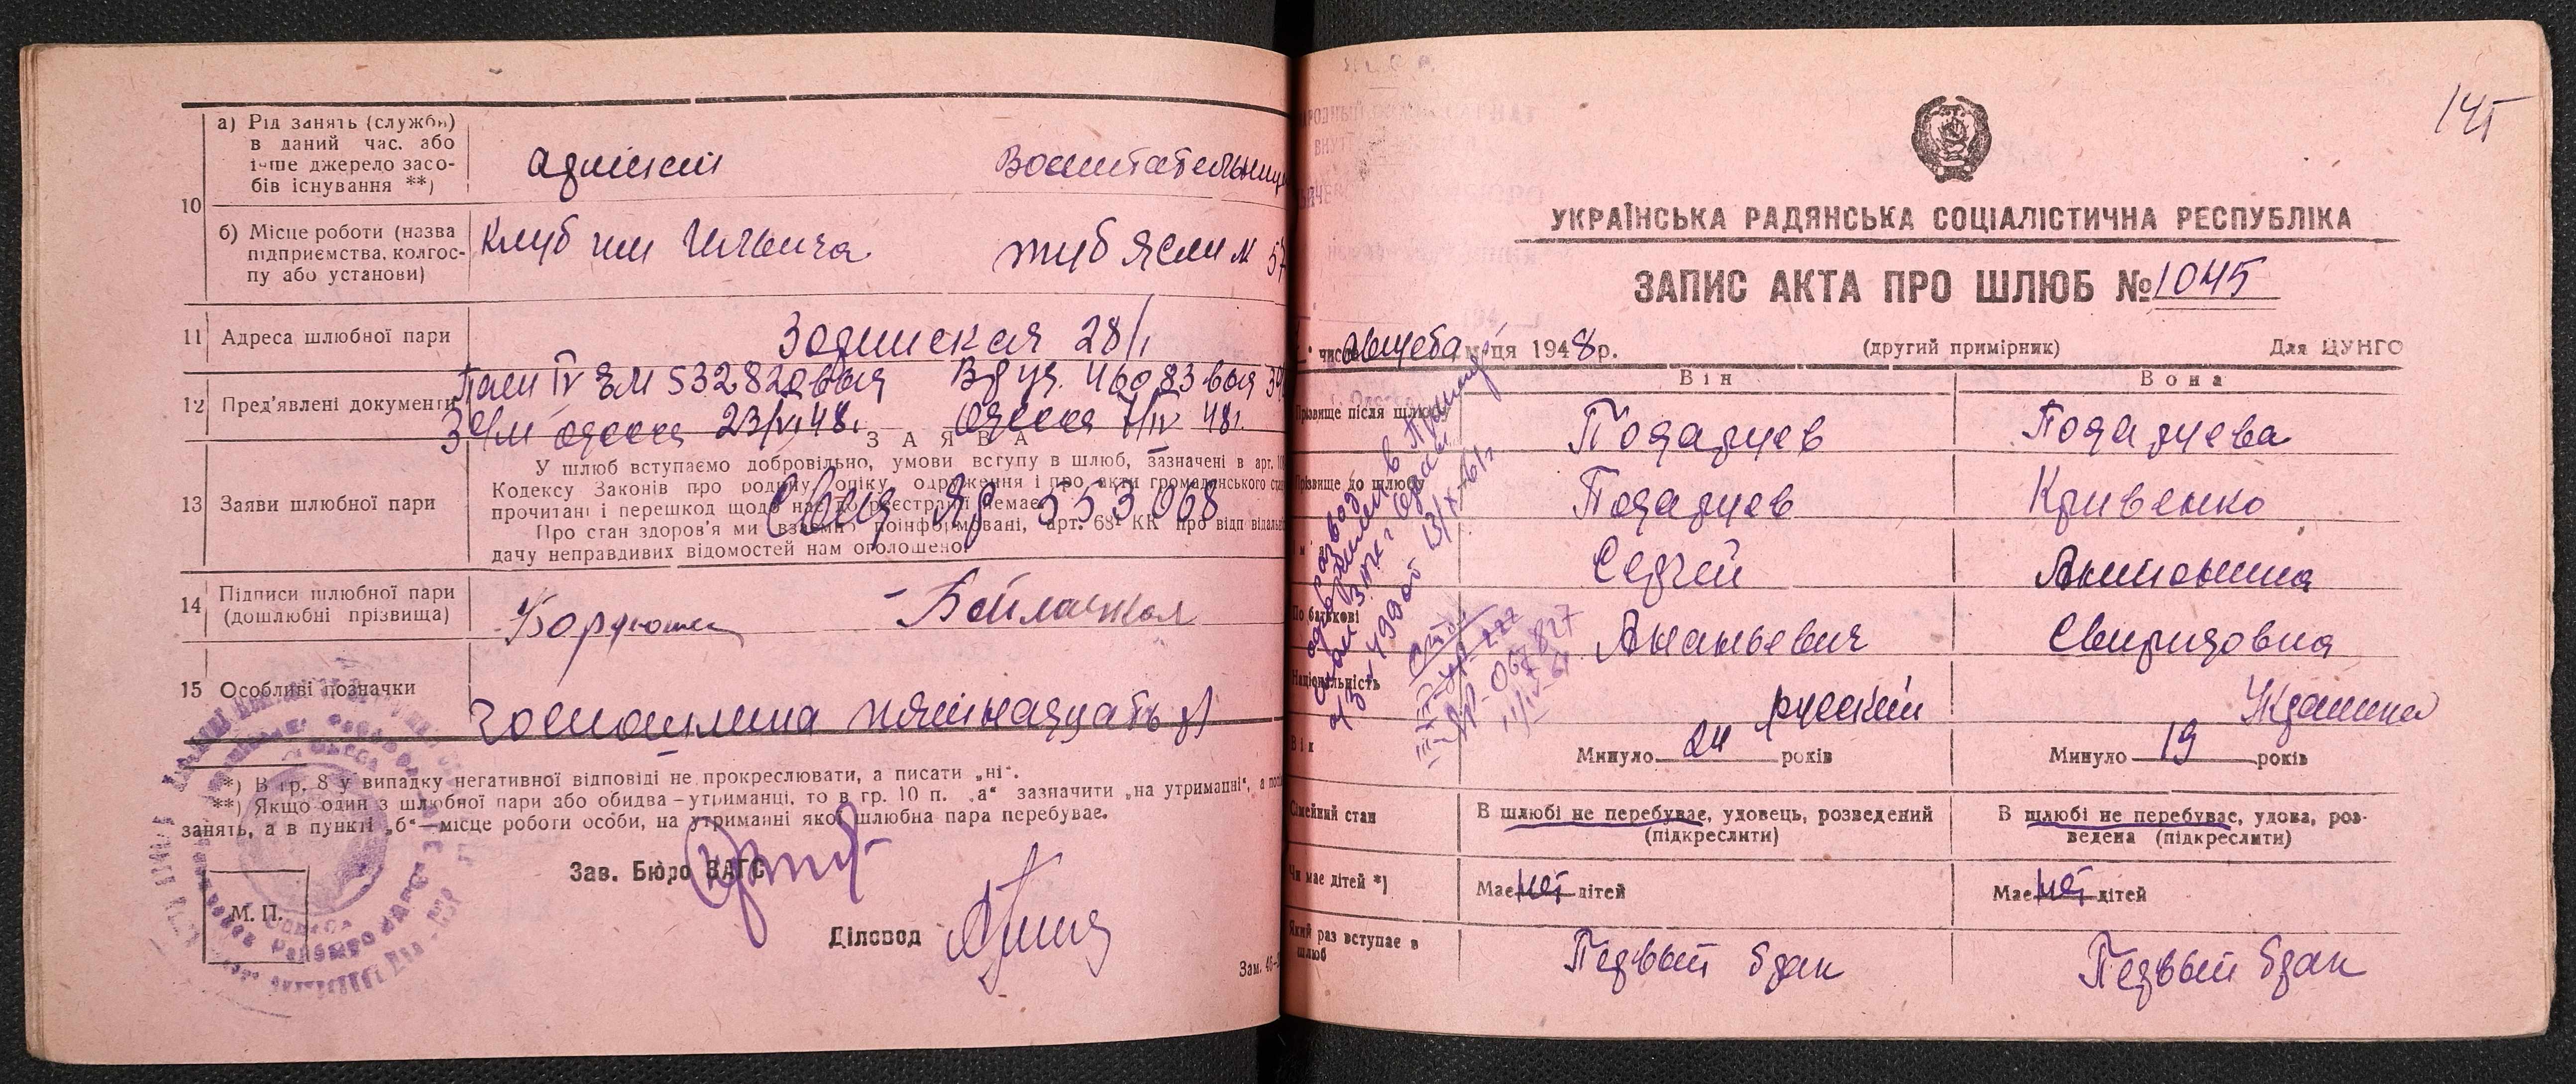 10
а) Рід занять (служби)
в даний час, або
інше джерело засо-
бів існування **)
Воспитательниц
б) Місце роботи (назва
підприємства, колгос-
пу або установи)
Клуб им Ильича
туб Ясли № 57
11 Адреса шлюбної пари
28/1
12 Пред'явлені документи
532820 выд
46083 выд
Одесса 23/VI 48г.
Одесса 48г.
ЗАЯВА
13 Заяви шлюбної пари
У шлюб вступаємо добровільно, умови вступу в шлюб, зазначені в арт.
Кодексу Законів про родину, опіку, одруження і про акти громадянського
прочитані і перешкод щодо нас до реєстрації немає.
Про стан здоров'я ми взаємно поінформовані, арт. 68¹ КК про
дачу неправдивих відомостей нам оголошено.
553068
14 Підписи шлюбної пари
(дошлюбні прізвища)
15 Особливі позначки
Госпошлина пятнадцать р
*) В гр. 8 у випадку негативної відповіді не прокреслювати, а писати „ні".
**) Якщо один з шлюбної пари або обидва–утриманці, то в гр. 10 п. „а" зазначити „на утриманні", а
занять, а в пункті „б"—місце роботи особи, на утриманні якої шлюбна пара перебуває.
Зав. Бюро ЗАГС
М. П.
Діловод
Зам. 46
145
УКРАЇНСЬКА РАДЯНСЬКА СОЦІАЛІСТИЧНА РЕСПУБЛІКА
ЗАПИС АКТА ПРО ШЛЮБ № 1045
августа 1948 р.
(другий примірник)
Для ЦУНГО
Він
Вона
Прізвище після шлюбу
Подарцев
Подарцева
Прізвище до шлюбу
Подарцев
Кривенко
Сергей
Антонина
По батькові
Ананьевич
Свиридовна
Національність
русский
Украинка
Вік
Минуло 24 років
Минуло 19 років
Сімейний стан
В шлюбі не перебуває, удовець, розведений
(підкреслити)
В шлюбі не перебуває, удова, роз-
ведена (підкреслити)
Чи має дітей *)
Має нет дітей
Має нет дітей
Який раз вступає в
шлюб
Первый брак
Первый брак